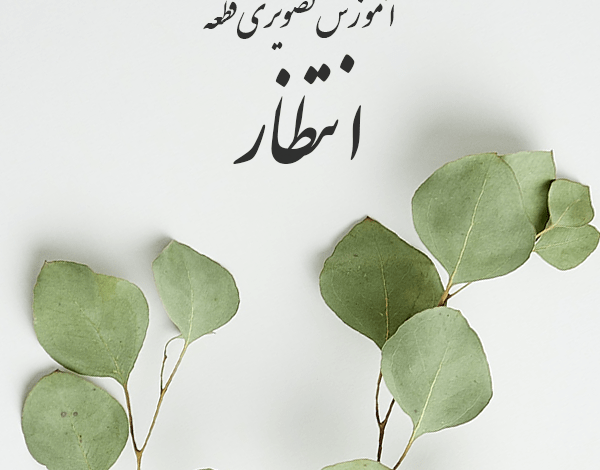 آموزش تصویری قطعه
انتظار